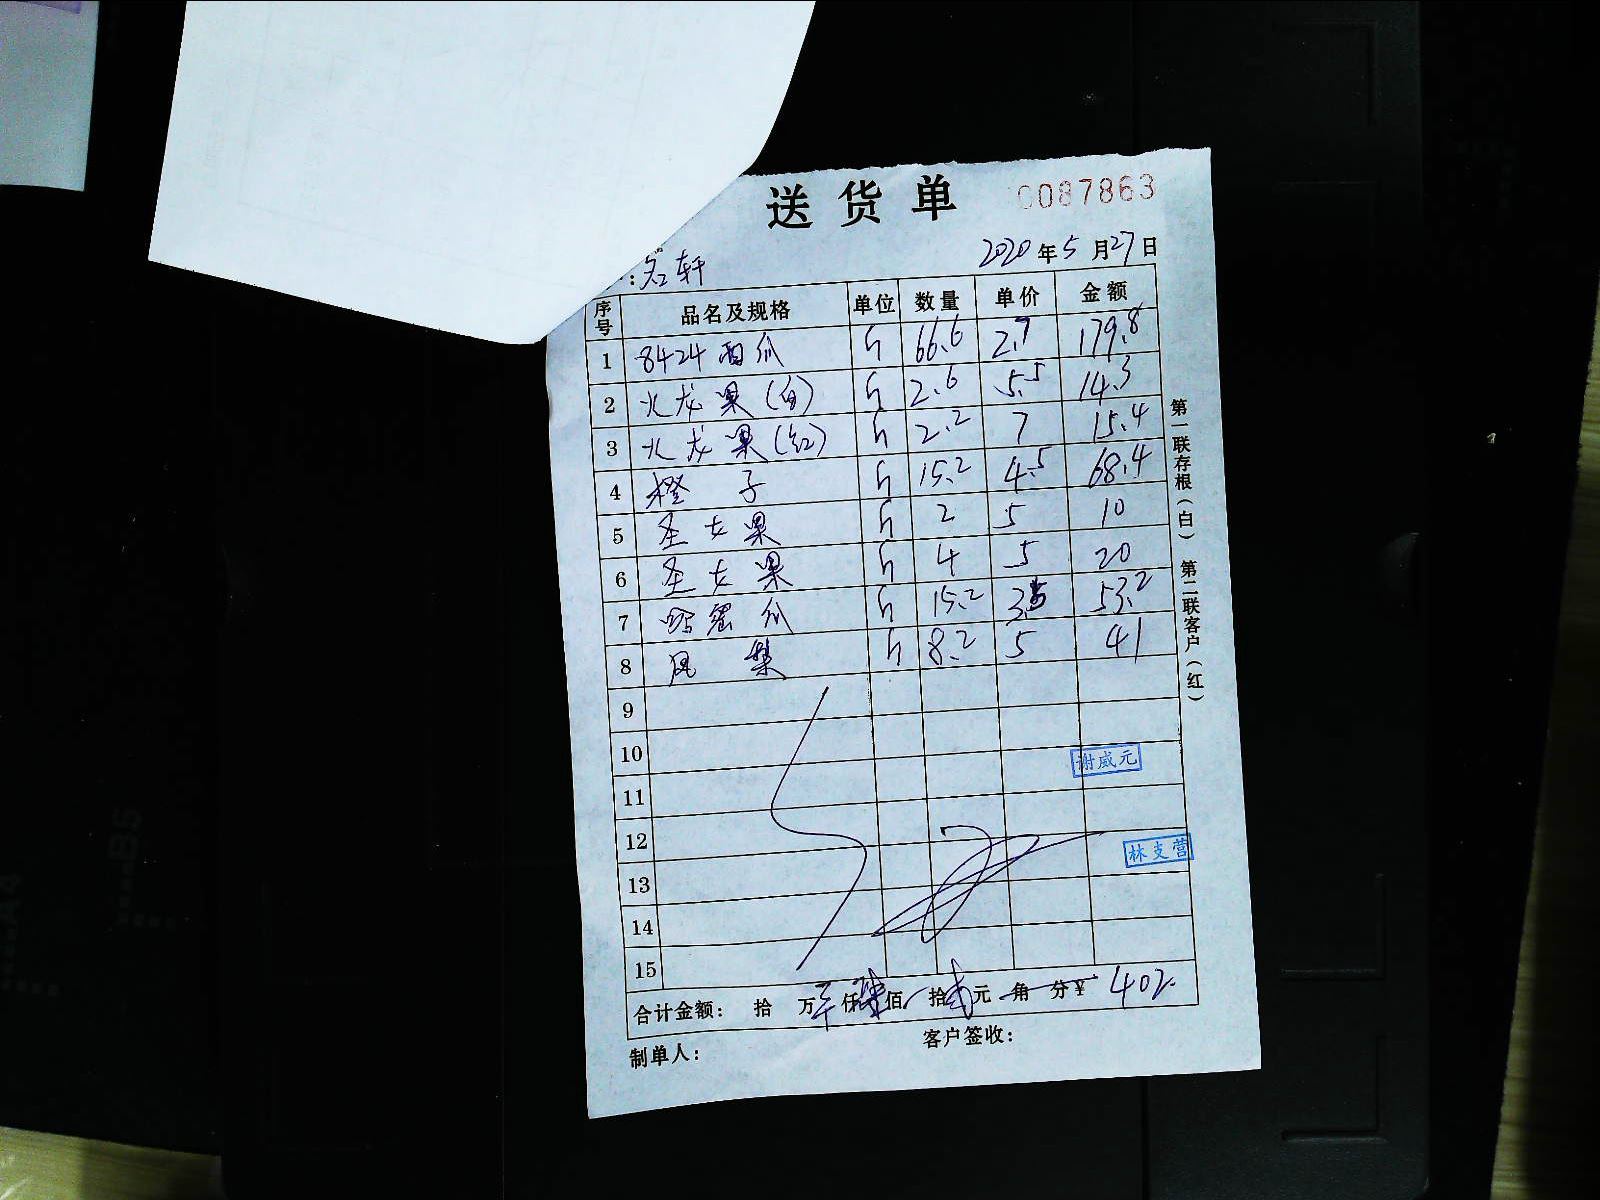 送货单 0087863
2020年5月27日
:宏轩
序号 品名及规格 单位 数量 单价 金额
1 8424西瓜 斤 66.6 2.7 179.8
2 火龙果(白) 斤 2.6 5.5 14.3
3 火龙果(红) 斤 2.2 7 15.4
4 橙子 斤 15.2 4.5 68.4
5 圣女果 斤 2 5 10
6 圣女果 斤 4 5 20
7 哈蜜瓜 斤 15.2 3.5 53.2
8 凤梨 斤 8.2 5 41
9
10
谢威元
11
12
林支营
13
14
15
合计金额: 拾 万 仟 佰 拾 元 角 分¥ 402.
制单人: 客户签收:
第一联存根(白) 第二联客户(红)